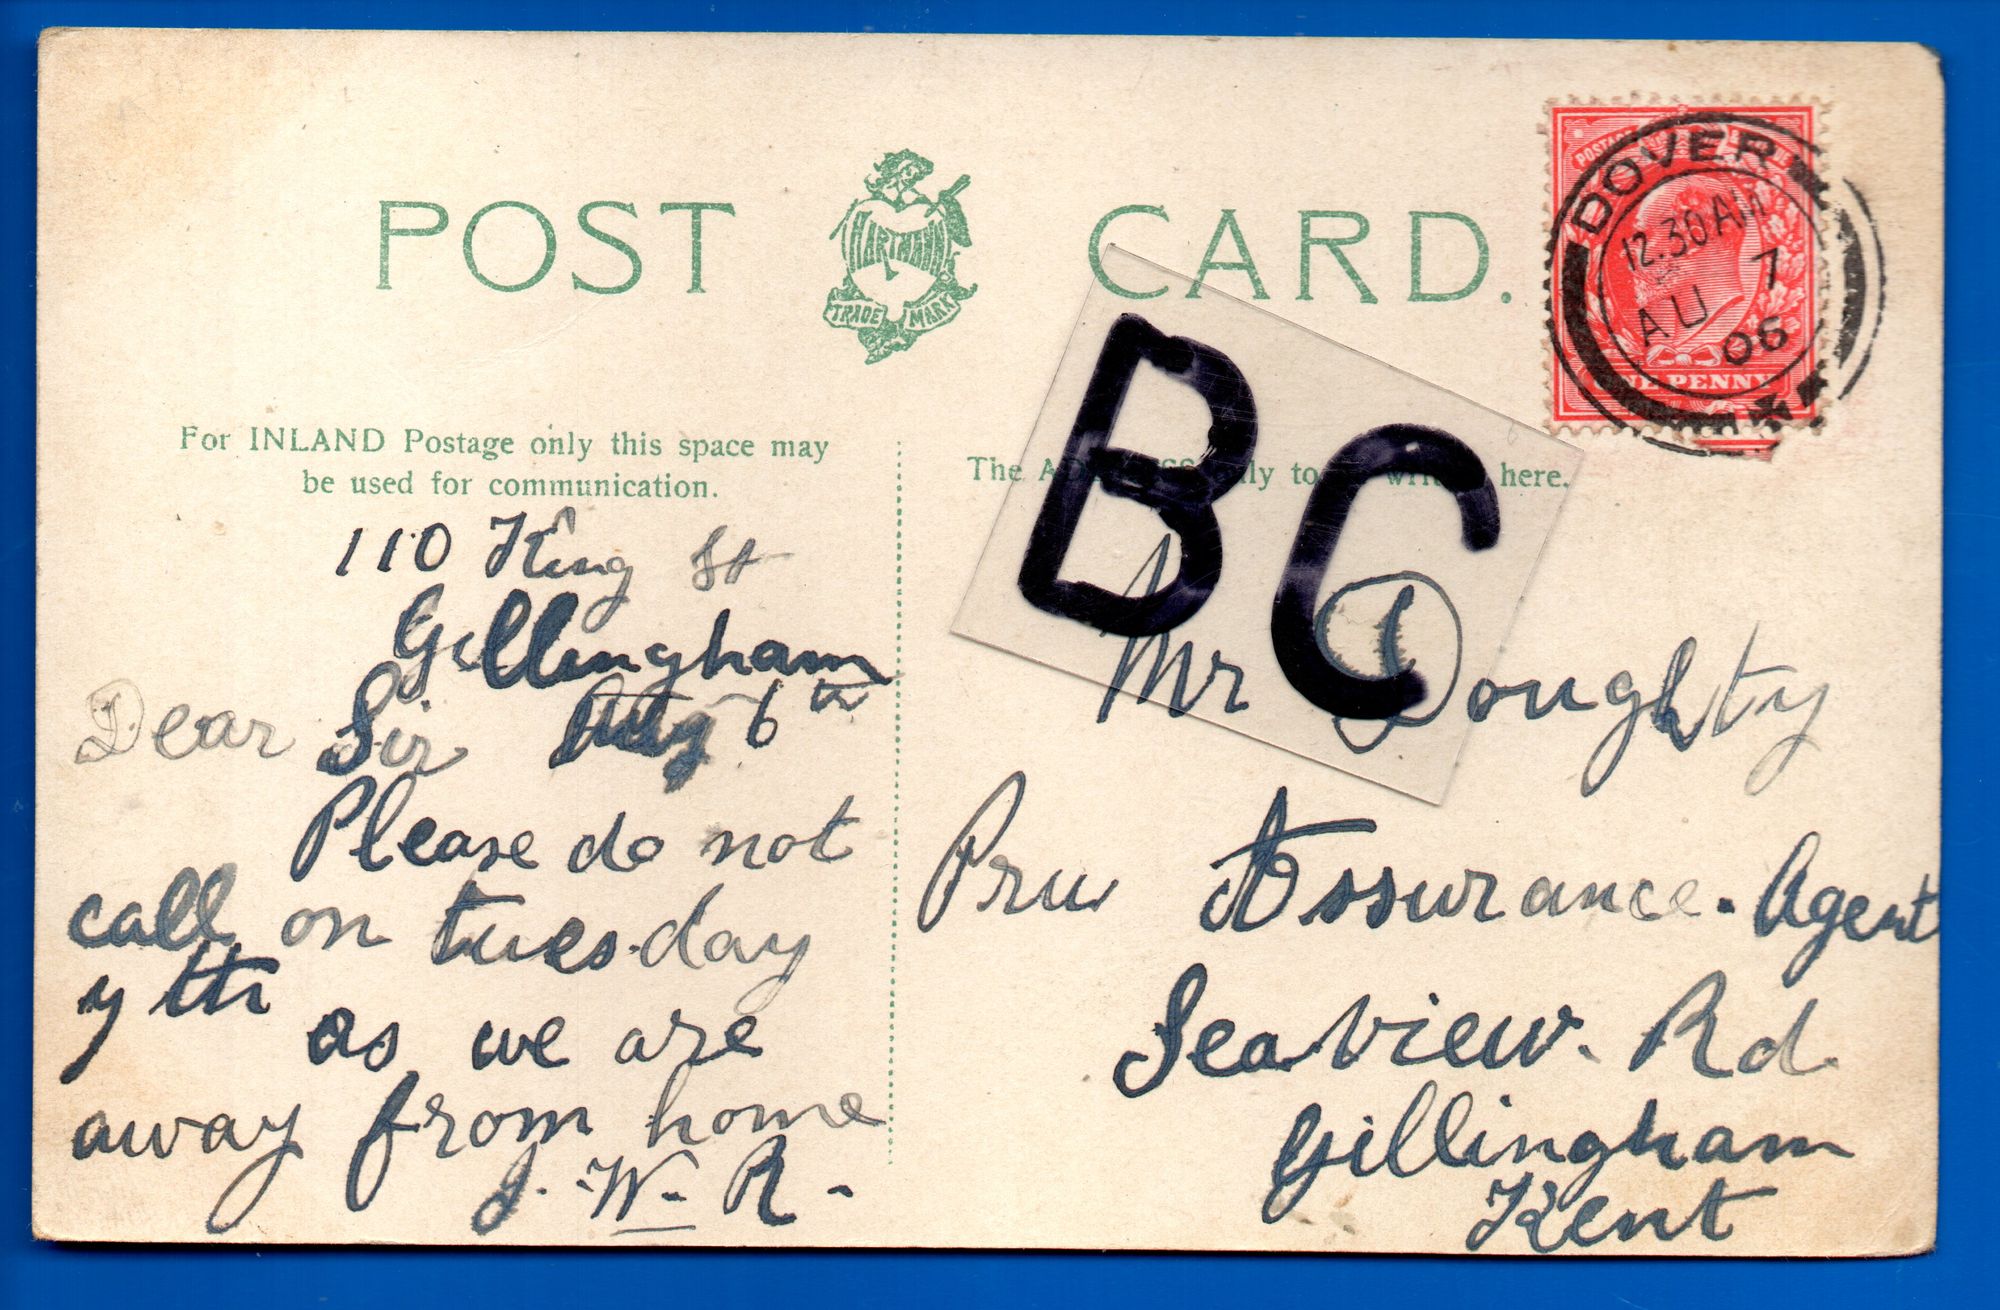 POST CARD.
HARTMANN
TRADE MARK
DOVER
12.30 AM
AU 7
06
ONE PENNY
For INLAND Postage only this space may
be used for communication.
110 King St
Gillingham
Dear Sir Aug 6th
Please do not
call on tuesday
7th as we are
away from home
J. W. R.
The here.
BC
Mr Doughty
Pru Assurance. Agent
Seaview. Rd
Gillingham
Kent